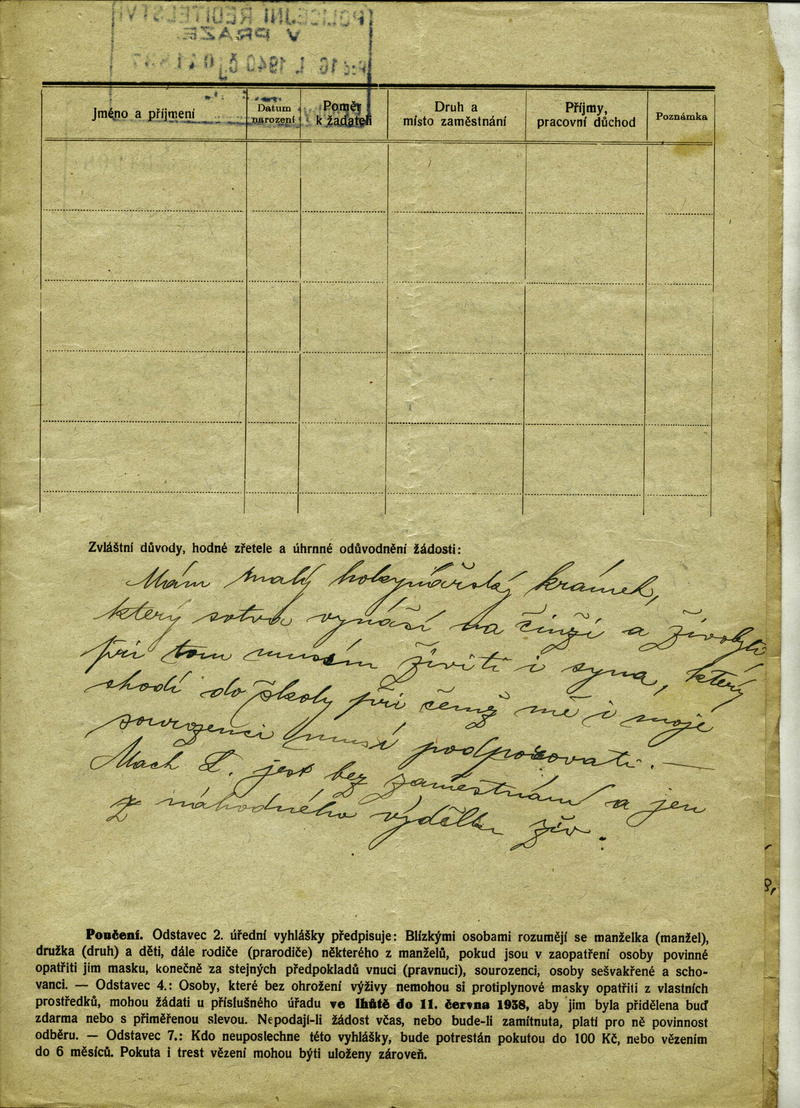 POLICEJNÍ ŘEDITELSTVÍ
V PRAZE
Jméno a příjmení
Datum narození
Poměr k žadateli
Druh a místo zaměstnání
Příjmy, pracovní důchod
Poznámka
Zvláštní důvody, hodné zřetele a úhrnné odůvodnění žádosti:
Mám malý hokynářský krámek,
který sotva vynáší na činži a živobytí
při tom musím živiti i syna, který
chodí do školy při čemž mě i moje
sourozenci musí podporovati. —
Mach L. jest bez zaměstnání a jen
z náhodného výdělku živ.
Poučení. Odstavec 2. úřední vyhlášky předpisuje: Blízkými osobami rozumějí se manželka (manžel),
družka (druh) a děti, dále rodiče (prarodiče) některého z manželů, pokud jsou v zaopatření osoby povinné
opatřiti jim masku, konečně za stejných předpokladů vnuci (pravnuci), sourozenci, osoby sešvakřené a scho-
vanci. — Odstavec 4.: Osoby, které bez ohrožení výživy nemohou si protiplynové masky opatřiti z vlastních
prostředků, mohou žádati u příslušného úřadu ve lhůtě do 11. června 1938, aby jim byla přidělena buď
zdarma nebo s přiměřenou slevou. Nepodají-li žádost včas, nebo bude-li zamítnuta, platí pro ně povinnost
odběru. — Odstavec 7.: Kdo neuposlechne této vyhlášky, bude potrestán pokutou do 100 Kč, nebo vězením
do 6 měsíců. Pokuta i trest vězení mohou býti uloženy zároveň.